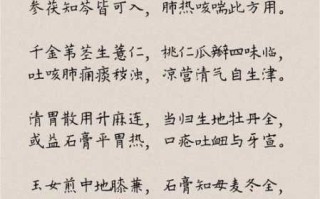 参茯知芩皆可入，肺热咳喘此方用。
千金苇茎生薏仁，桃仁瓜瓣四味临，
吐咳肺痈痰秽浊，凉营清气自生津。
清胃散用升麻连，当归生地牡丹全，
或益石膏平胃热，口疮吐衄与牙宣。
玉女煎中地膝兼，石膏知母麦冬全，